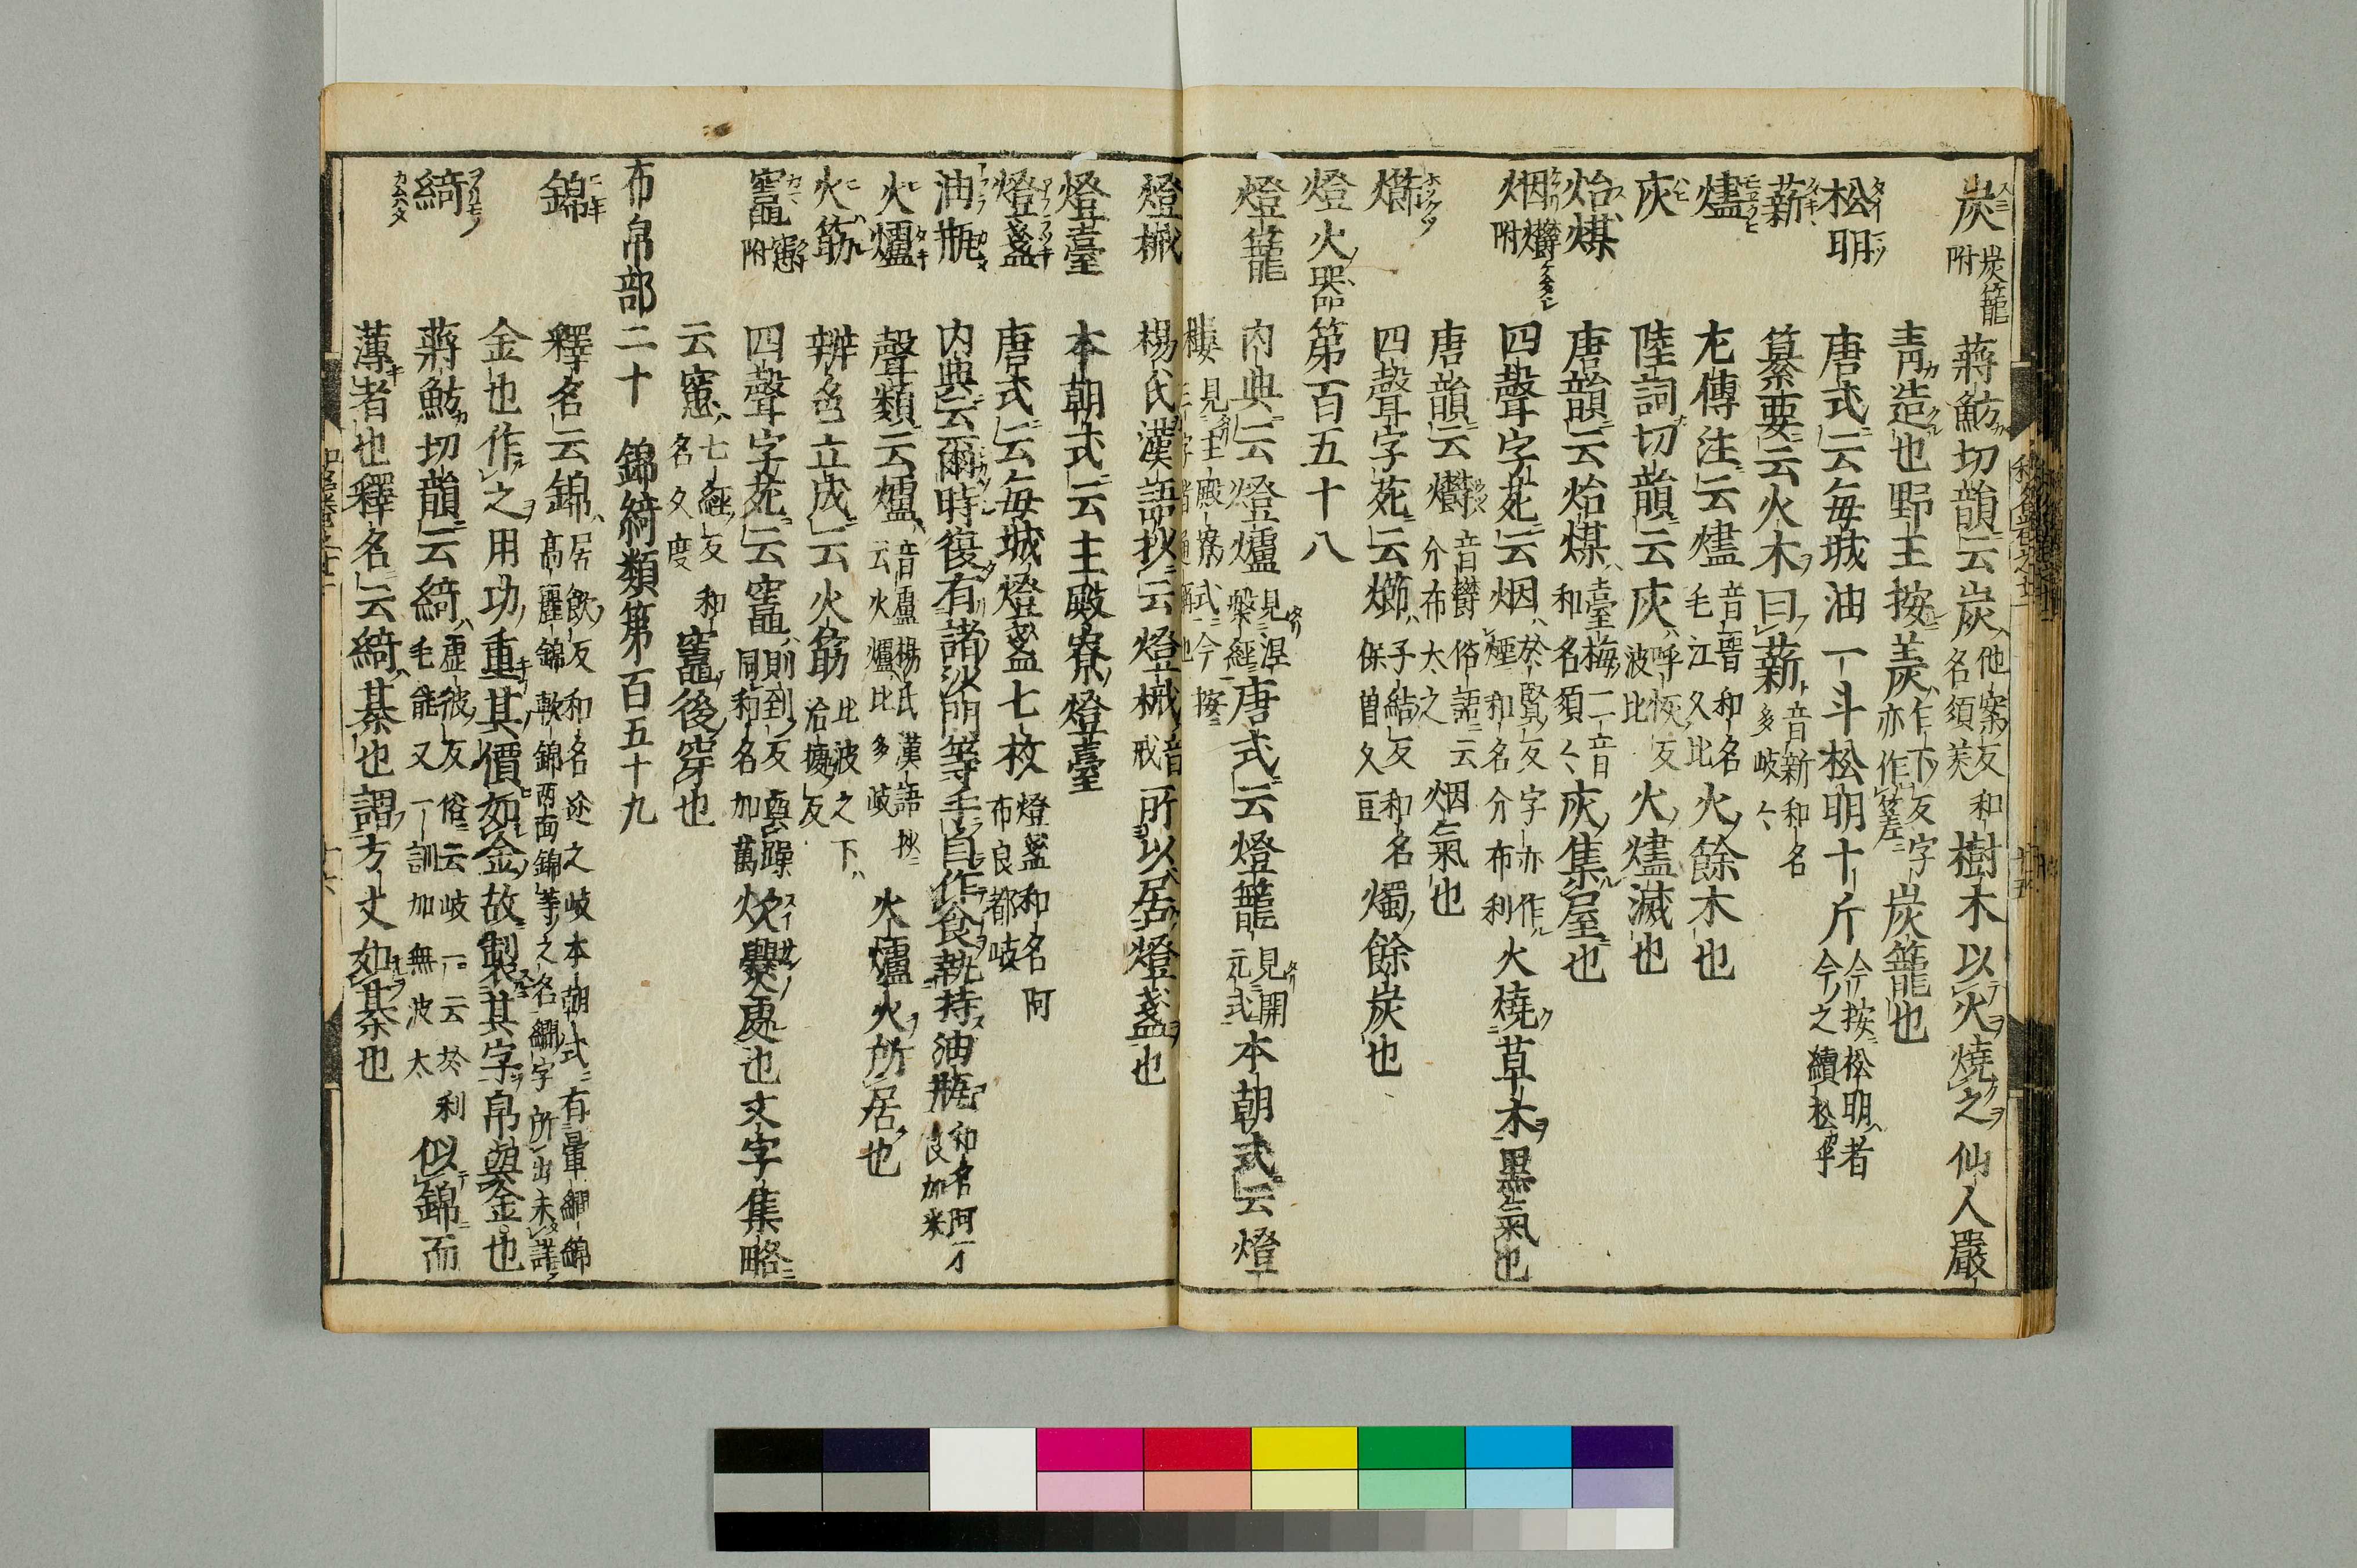 炭 炭籠附 蔣魴切韻云炭他案反和名須美樹木以火燒之仙人嚴
青造也野王按羡乍下反字亦作炭籠也
松明 唐式云每城油一斗松明十斤今按松明者今之續松乎
薪 纂要云火木曰薪音新和名多岐々
燼 左傳注云燼音晉和名毛江久比火餘木也
灰 陸詞切韻云灰呼恢反波比火燼滅也
炲煤 唐韻云炲煤臺梅二音和名須々灰集屋也
烟 欝附 四聲字苑云烟於賢反字亦作煙和名介布利火燒草木黑氣也
唐韻云欝音欝俗語云介布太之烟氣也
㸅 四聲字苑云㸅子結反和名保曾久豆燭餘炭也
燈火器第百五十八
燈籠 內典云燈爐見涅槃經唐式云燈籠見開元式本朝式云燈
樓見主殿寮式今按三字皆通稱也
燈械 楊氏漢語抄云燈械音戒所以居燈盞也
燈臺 本朝式云主殿寮燈臺
燈盞 唐式云每城燈盞七枚燈盞和名阿布良都岐
油瓶 內典云爾時復有諸沙門等手自作食執持油瓶和名阿不良加米
火爐 聲類云爐音盧楊氏漢語抄云火爐比多岐火爐火所居也
火筯 辨色立成云火筯比波之下治據反
竈 窻附 四聲字苑云竈則到反與躁同和名加萬炊爨處也文字集略
云窻七經反和名久度竈後穿也
布帛部二十 錦綺類第百五十九
錦 釋名云錦居飲反和名迩之岐本朝式有暈繝錦高麗錦軟錦兩面錦等之名繝字所出未詳
金也作之用功重其價如金故製其字帛與金也
綺 蔣魴切韻云綺虛彼反俗云岐一云於利毛能又一訓加無波太似錦而
薄者也釋名云綺棊也謂方文如棊也